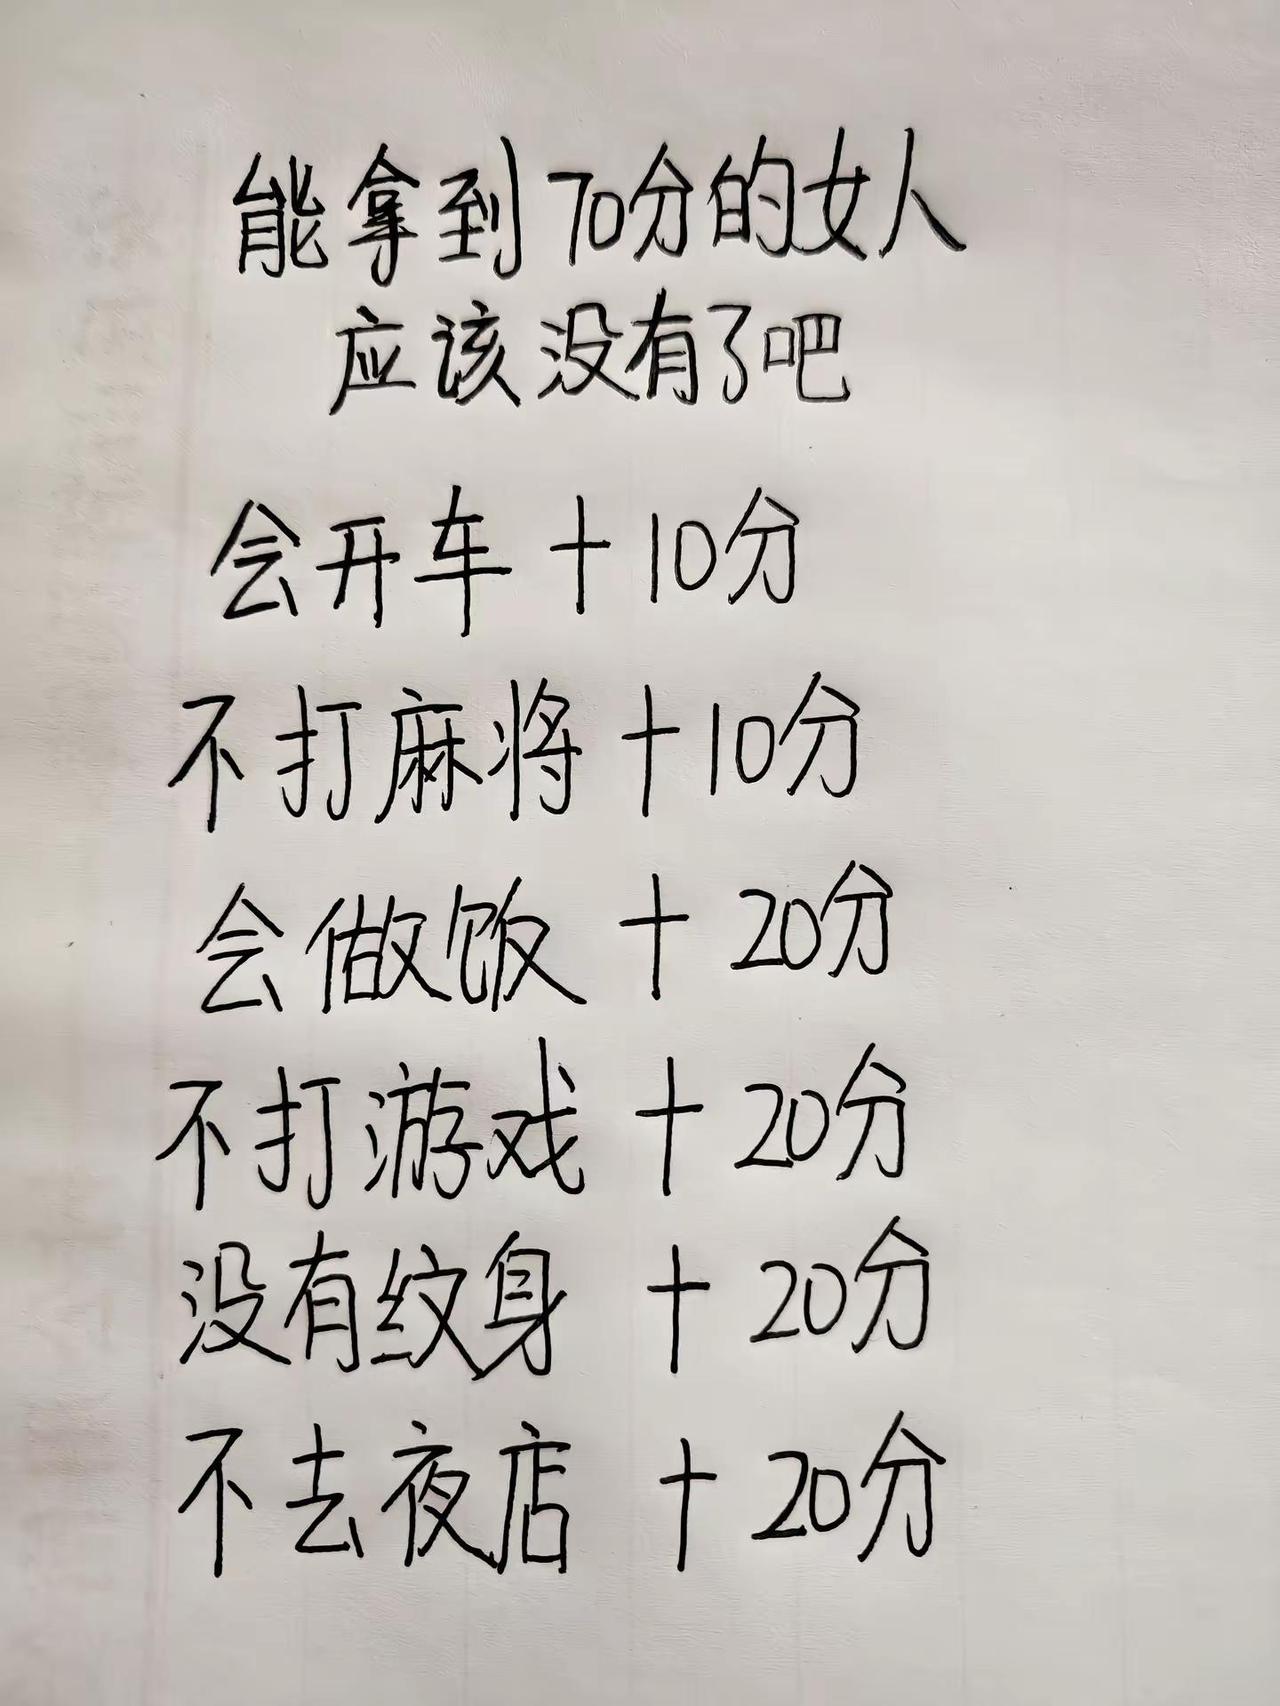 能拿到70分的女人
应该没有了吧
会开车+10分
不打麻将+10分
会做饭+20分
不打游戏+20分
没有纹身+20分
不去夜店+20分